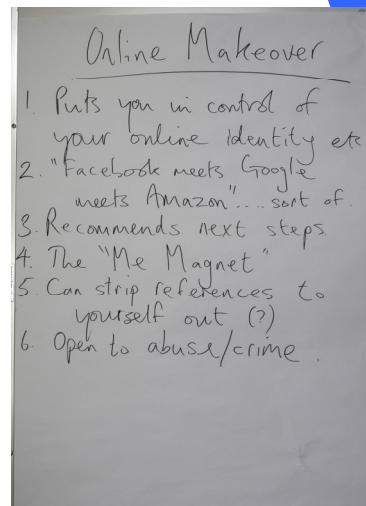 Online Makeover
1. Puts you in control of
your online identity etc
2. "Facebook meets Google
meets Amazon".... sort of.
3. Recommends next steps
4. The "Me Magnet"
5. Can strip references to
yourself out (?)
6. Open to abuse/crime.